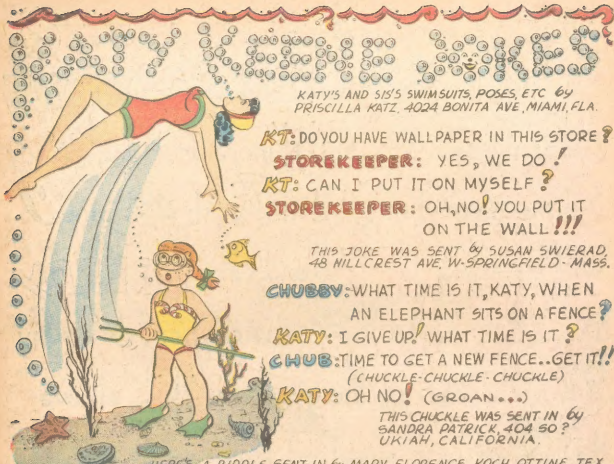 KATY KEENE JOKES
KATY'S AND SIS'S SWIMSUITS, POSES, ETC by
PRISCILLA KATZ, 4024 BONITA AVE, MIAMI, FLA.
KT: DO YOU HAVE WALLPAPER IN THIS STORE?
STOREKEEPER: YES, WE DO!
KT: CAN I PUT IT ON MYSELF?
STOREKEEPER: OH, NO! YOU PUT IT
ON THE WALL!!!
THIS JOKE WAS SENT by SUSAN SWIERAD,
48 HILLCREST AVE, W-SPRINGFIELD-MASS.
CHUBBY: WHAT TIME IS IT, KATY, WHEN
AN ELEPHANT SITS ON A FENCE?
KATY: I GIVE UP! WHAT TIME IS IT?
CHUB: TIME TO GET A NEW FENCE..GET IT!!
(CHUCKLE-CHUCKLE-CHUCKLE)
KATY: OH NO! (GROAN...)
THIS CHUCKLE WAS SENT IN by
SANDRA PATRICK, 404 SO?
UKIAH, CALIFORNIA.
HERE'S A RIDDLE SENT IN by MARY FLORENCE KOCH, OTTINE, TEX.